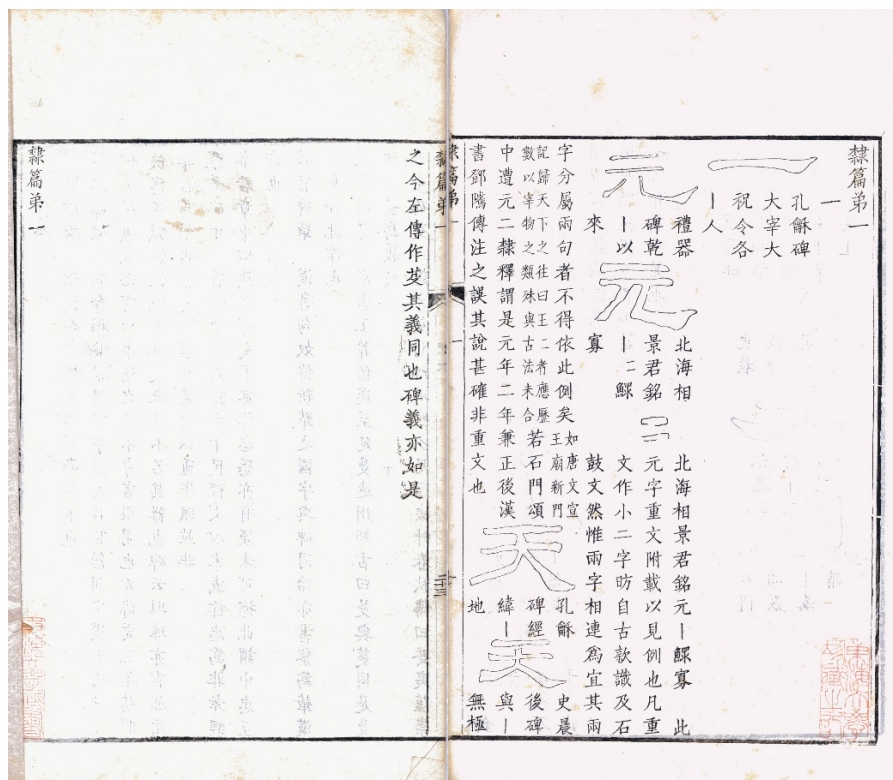 隸篇弟一
一
一
孔龢碑
大宰大
祝令各
丨人
元
禮器
碑乾
丨以
來
元
北海相
景君銘
丨二鰥
寡
二
北海相景君銘元丨鰥寡此
元字重文附載以見例也凡重
文作小二字昉自古款識及石
鼓文然惟兩字相連爲宜其兩
字分屬兩句者不得依此例矣
如唐文宣
王廟新門
記歸天下之往曰王二者應歷
數以宰物之類殊與古法未合
若石門頌
中遭元二隸釋謂是元年二年兼正後漢
書鄧隲傳注之誤其說甚確非重文也
天
孔龢
碑經
緯丨
地
天
史晨
後碑
與丨
無極
隸篇弟一
一
隸篇弟一
之今左傳作芟其義同也碑義亦如是
隸篇弟一